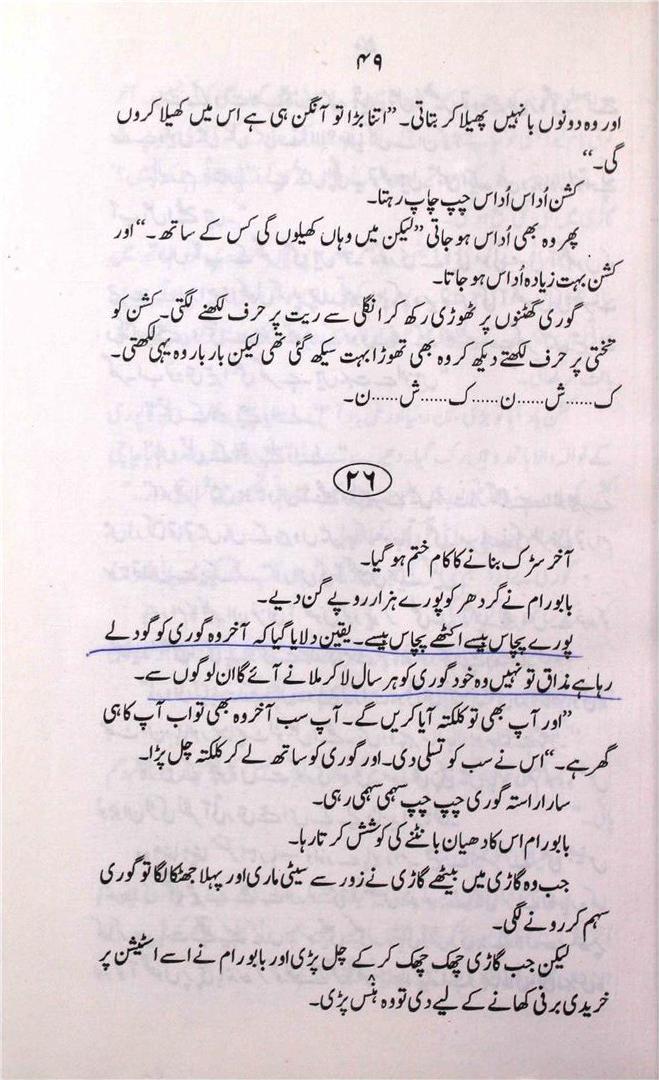 ۴۹
اور وہ دونوں بانہیں پھیلا کر بتاتی۔ ”اتنا بڑا تو آنگن ہی ہے اس میں کھیلا کروں
گی۔“
کشن اُداس اُداس چپ چاپ رہتا۔
پھر وہ بھی اُداس ہو جاتی ”لیکن میں وہاں کھیلوں گی کس کے ساتھ۔“ اور
کشن بہت زیادہ اُداس ہو جاتا۔
گوری گھٹنوں پر ٹھوڑی رکھ کر انگلی سے ریت پر حرف لکھنے لگتی۔ کشن کو
تختی پر حرف لکھتے دیکھ کر وہ بھی تھوڑا بہت سیکھ گئی تھی لیکن بار بار وہ یہی لکھتی۔
ک.....ش.....ن......ک......ش......ن۔
۲۶
آخر سڑک بنانے کا کام ختم ہو گیا۔
بابو رام نے گردھر کو پورے ہزار روپے گن دیے۔
پورے پچاس پیسے اکٹھے پچاس پیسے۔ یقین دلایا گیا کہ آخر وہ گوری کو گود لے
رہا ہے مذاق تو نہیں وہ خود گوری کو ہر سال لا کر ملانے آئے گا ان لوگوں سے۔
”اور آپ بھی تو کلکتہ آیا کریں گے۔ آپ سب آخر وہ بھی تو اب آپ کا ہی
گھر ہے۔“ اس نے سب کو تسلی دی۔ اور گوری کو ساتھ لے کر کلکتہ چل پڑا۔
سارا راستہ گوری چپ چپ سہمی سہمی رہی۔
بابو رام اس کا دھیان بانٹنے کی کوشش کرتا رہا۔
جب وہ گاڑی میں بیٹھے گاڑی نے زور سے سیٹی ماری اور پہلا جھٹکا لگا تو گوری
سہم کر رونے لگی۔
لیکن جب گاڑی چھک چھک کر کے چل پڑی اور بابو رام نے اسے اسٹیشن پر
خریدی برفی کھانے کے لیے دی تو وہ ہنس پڑی۔